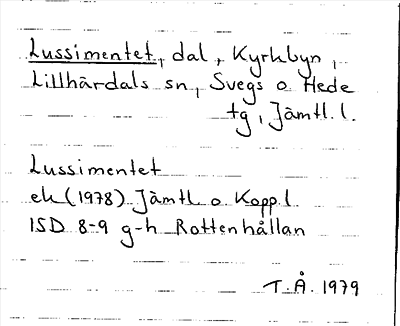 Lussimentet, dal, Kyrkbyn,
Lillhärdals sn, Svegs o Hede
tg, Jämtl. l.
Lussimentet
ek (1978) Jämtl o Kopp l
ISD 8-9 g-h Rottenhållan
T.Å. 1979